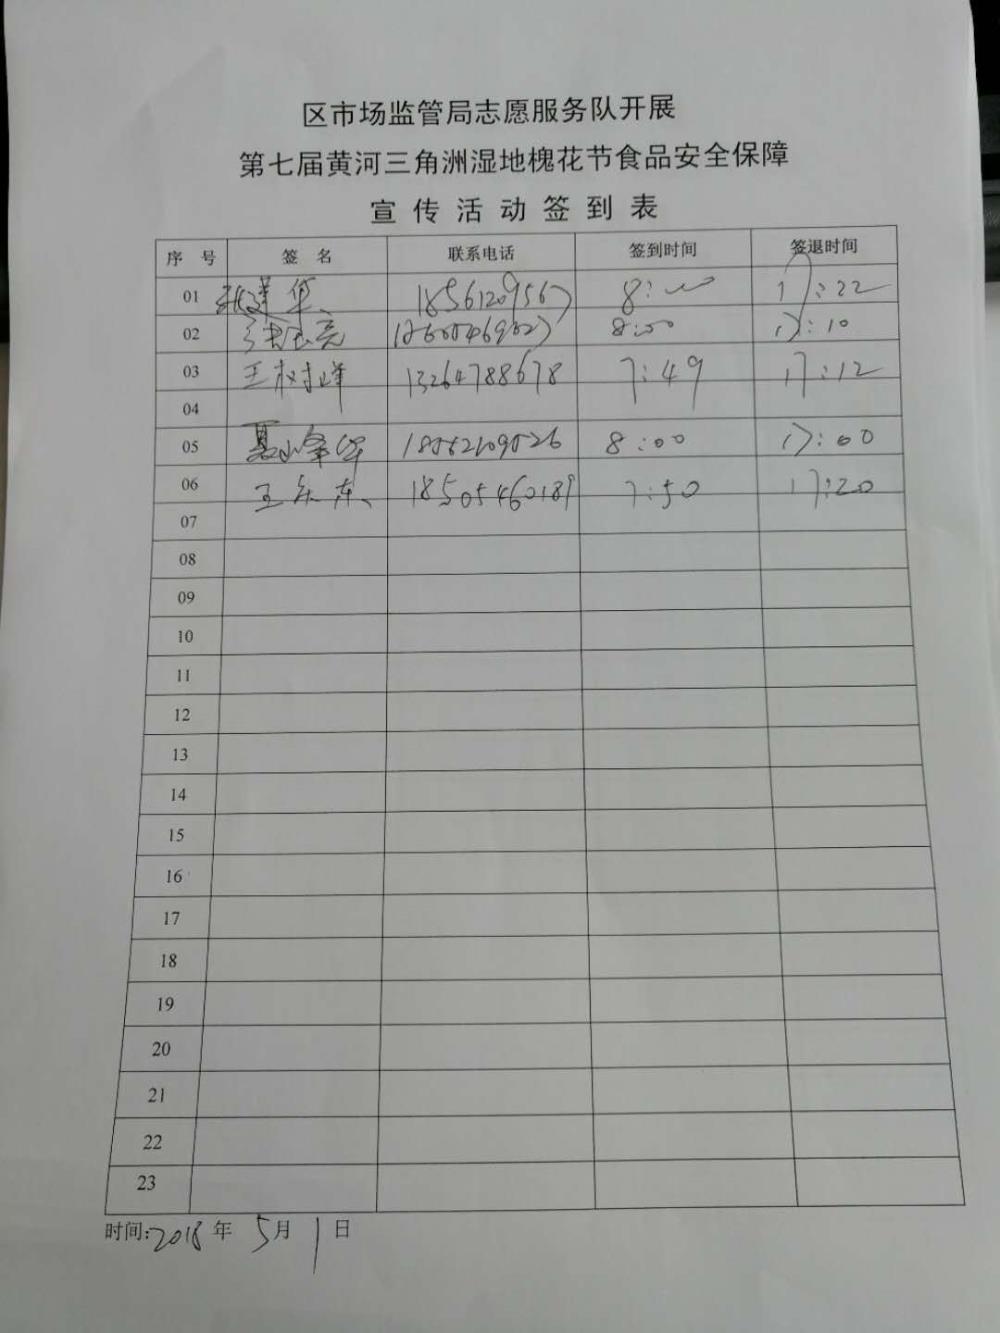 区市场监管局志愿服务队开展
第七届黄河三角洲湿地槐花节食品安全保障
宣传活动签到表
序号 签名 联系电话 签到时间 签退时间
01 8:00 17:22
02 8:00 17:10
03 王树峰 13264788678 7:49 17:12
04
05 8:00 17:00
06 王乐东 18505460189 7:50 17:20
07
08
09
10
11
12
13
14
15
16
17
18
19
20
21
22
23
时间:2018年5月1日